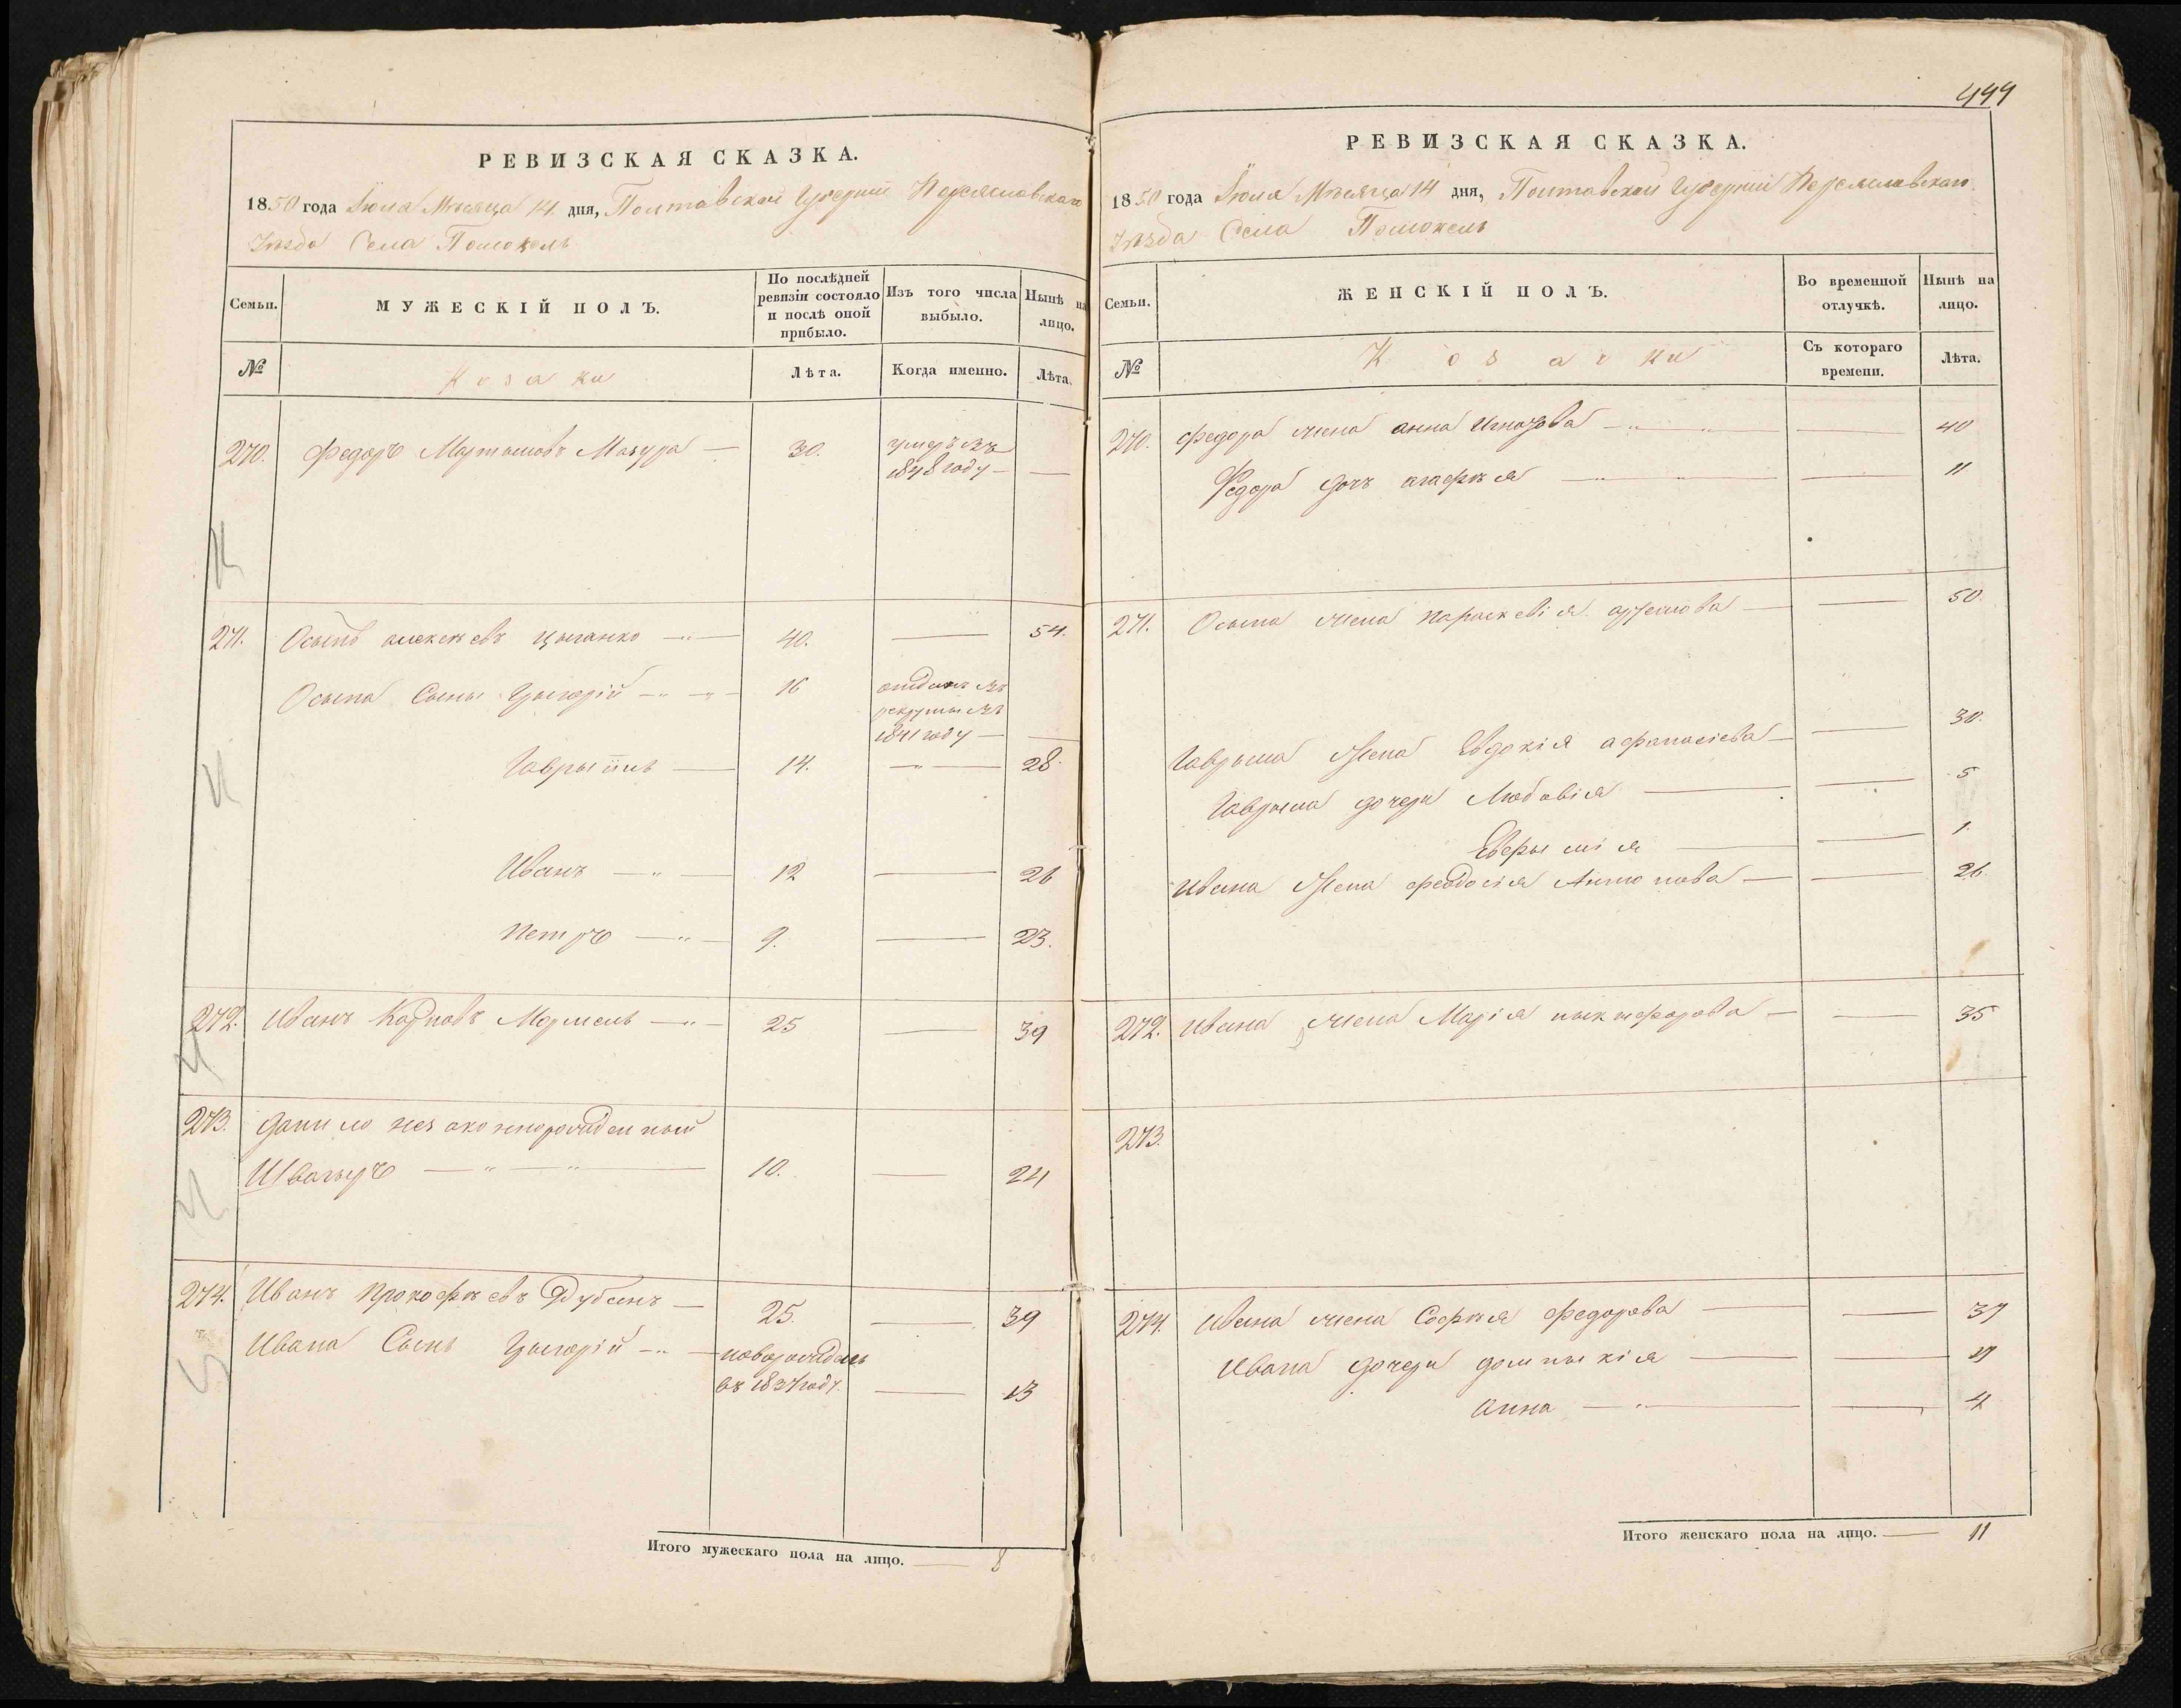 РЕВИЗСКАЯ СКАЗКА.
1850 года Іюля Мѣсяца 14. дня, Полтавской Губерніи Переяславскаго
Уѣзда Села Помокель
Семьи.
МУЖЕСКІЙ ПОЛЪ.
По послѣдней
ревизіи состояло
и послѣ оной
прибыло.
Изъ того числа
выбыло.
Нынѣ на
лицо.
№
Козаки
Лѣта.
Когда именно.
Лѣта.
270. Федоръ Мазура — 30. умеръ въ
1848 году — —
271. Осыпъ алексѣевъ цыганко —„— 40. — 54.
Осыпа Сыны Грыгорій —„—„— 16 отданъ въ
рекруты въ
1841 году — —
Гаврыіилъ — 14. —„— 28.
Иванъ —„— 12 — 26
Петръ —„— 9. — 23.
272. Иванъ Карповъ —„— 25 — 39
273. Данило незаконнорожденный
Швагыръ —„—„— 10. — 24
274. Иванъ Прокофьевъ Дубенъ — 25. — 39
Ивана Сынъ Грыгорій —„— новорожденъ
въ 1837 году. — 13
Итого мужескаго пола на лицо. — 8
499
РЕВИЗСКАЯ СКАЗКА.
1850 года Іюля Мѣсяца 14 дня, Полтавской Губерніи Переяславскаго
Уѣзда Села Помокель
Семьи.
ЖЕНСКІЙ ПОЛЪ.
Во временной
отлучкѣ.
Нынѣ на
лицо.
№
Козачки
Съ котораго
времени.
Лѣта.
270. Федора жена анна —„—„— — 40
Федора дочь агафья —„—„— — 11
271. Осыпа жена параскевія артемова — — 50.
Гаврыла жена Евдокія афанасіева — — 30.
Гаврыла дочери Любовія — — 5
Евфымія — — 1.
Ивана жена феодосія Антонова — — 26.
272. Ивана жена Марія ныкифорова — — 35
273.
274. Ивана жена Софья Федорова — — 37
Ивана дочери домныкія — — 17
анна — — 4
Итого женскаго пола на лицо. — 11